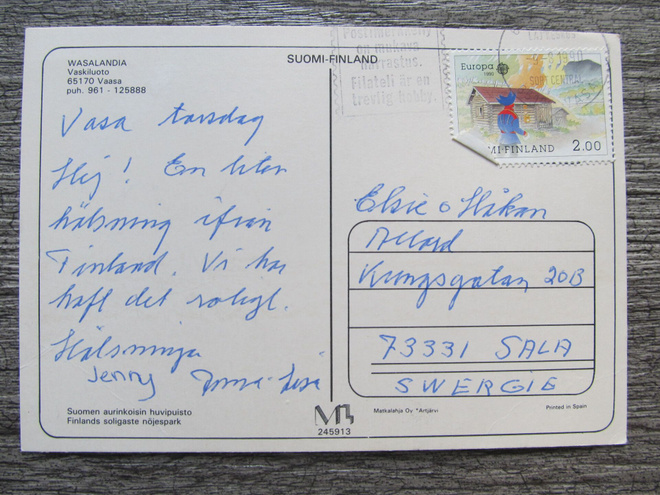 WASALANDIA
Vaskiluoto
65170 Vaasa
puh. 961 - 125888
SUOMI-FINLAND
Postimerkkeily
on mukava
harrastus.
Filateli är en
trevlig hobby.
Europa
1990
MI-FINLAND 2.00
Vasa torsdag
Hej! En liten
hälsning ifrån
Finland. Vi har
haft det roligt.
Hälsninga
Jenny Anna-Lisa
Elsie o Håkan
Kungsgatan 20B
73331 SALA
SWERGIE
Suomen aurinkoisin huvipuisto
Finlands soligaste nöjespark
245913
Matkalahja Oy "Artjärvi
Printed in Spain